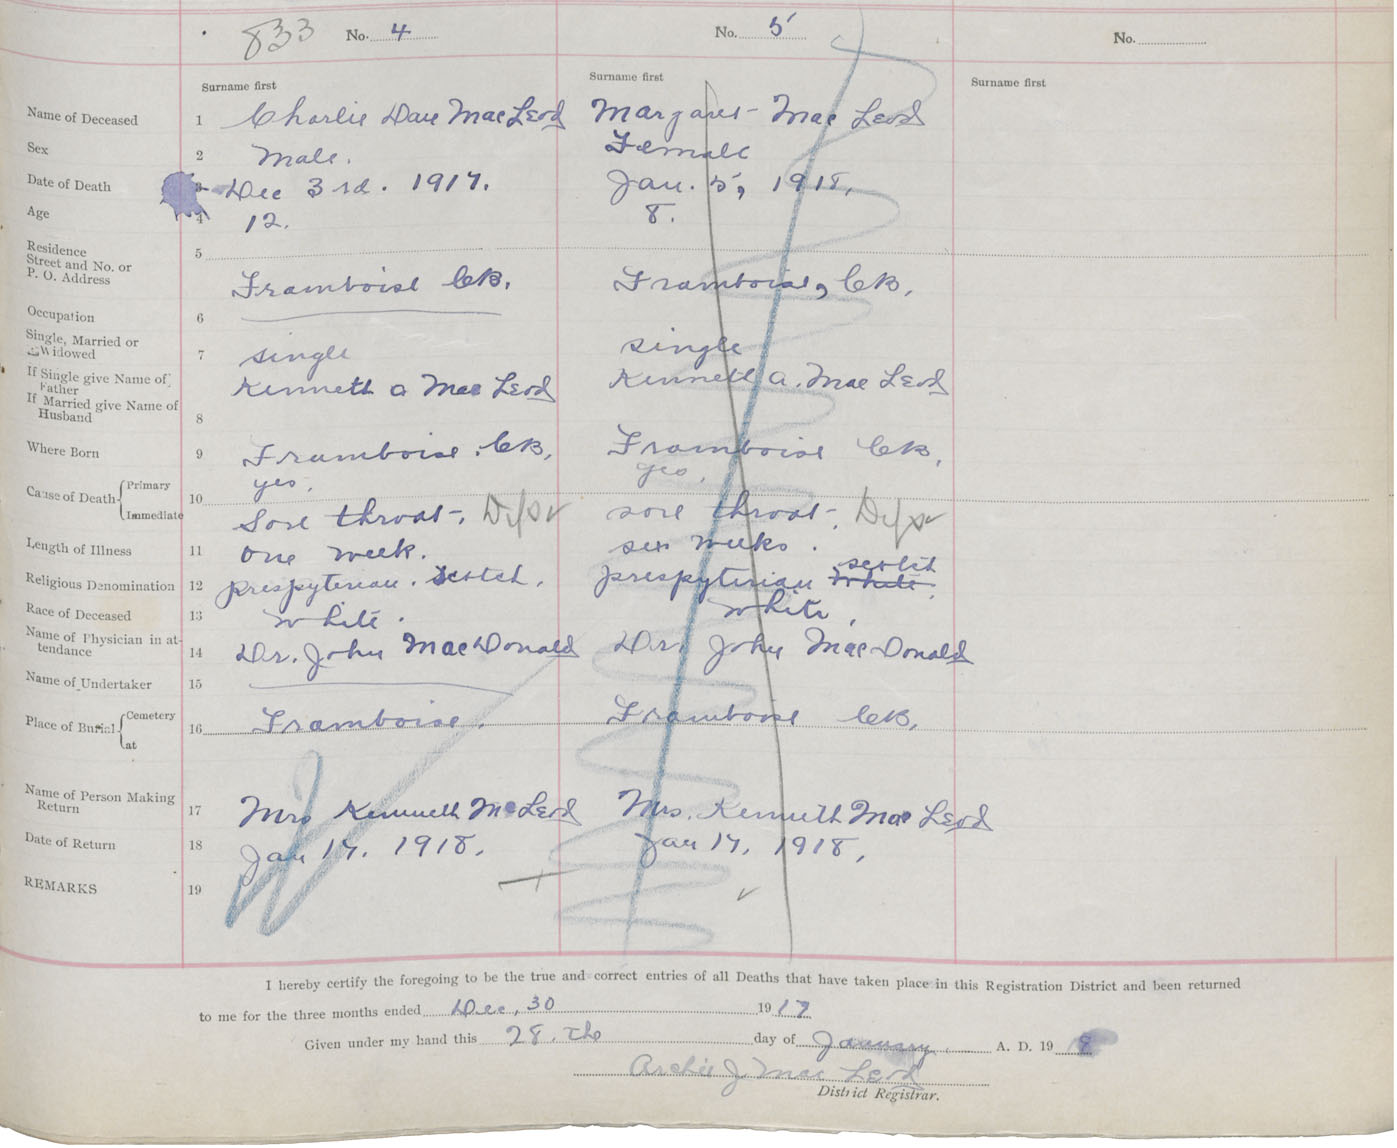 833 No. 4 No. 5 No.
Surname first Surname first Surname first
Name of Deceased 1 Charlie Dan MacLeod Margaret MacLeod
Sex 2 Male. Female
Date of Death 3 Dec 3rd. 1917. Jan. 5, 1918.
Age 4 12. 8.
Residence
Street and No. or 5
P. O. Address Framboise CB. Framboise, CB.
Occupation 6
Single, Married or
Widowed 7 single single
If Single give Name of
Father Kenneth A MacLeod Kenneth A. MacLeod
If Married give Name of
Husband 8
Where Born 9 Framboise. CB. Framboise CB.
yes. yes.
Cause of Death Primary 10
Immediate Sore throat. Dip ✓ sore throat. Dip ✓
Length of Illness 11 one week. six weeks.
scotch
Religious Denomination 12 prespyterian. Scotch. prespyterian white.
Race of Deceased 13 white. white.
Name of Physician in at-
tendance 14 Dr. John MacDonald Dr. John MacDonald
Name of Undertaker 15
Place of Burial Cemetery 16 Framboise. Framboise CB.
at
Name of Person Making
Return 17 Mrs Kenneth McLeod Mrs. Kenneth MacLeod
Date of Return 18 Jan 17. 1918. Jan 17, 1918.
REMARKS 19 ✓
I hereby certify the foregoing to be the true and correct entries of all Deaths that have taken place in this Registration District and been returned
to me for the three months ended Dec, 30 1917
Given under my hand this 28.th day of January A. D. 19 8
Archie J MacLeod
District Registrar.